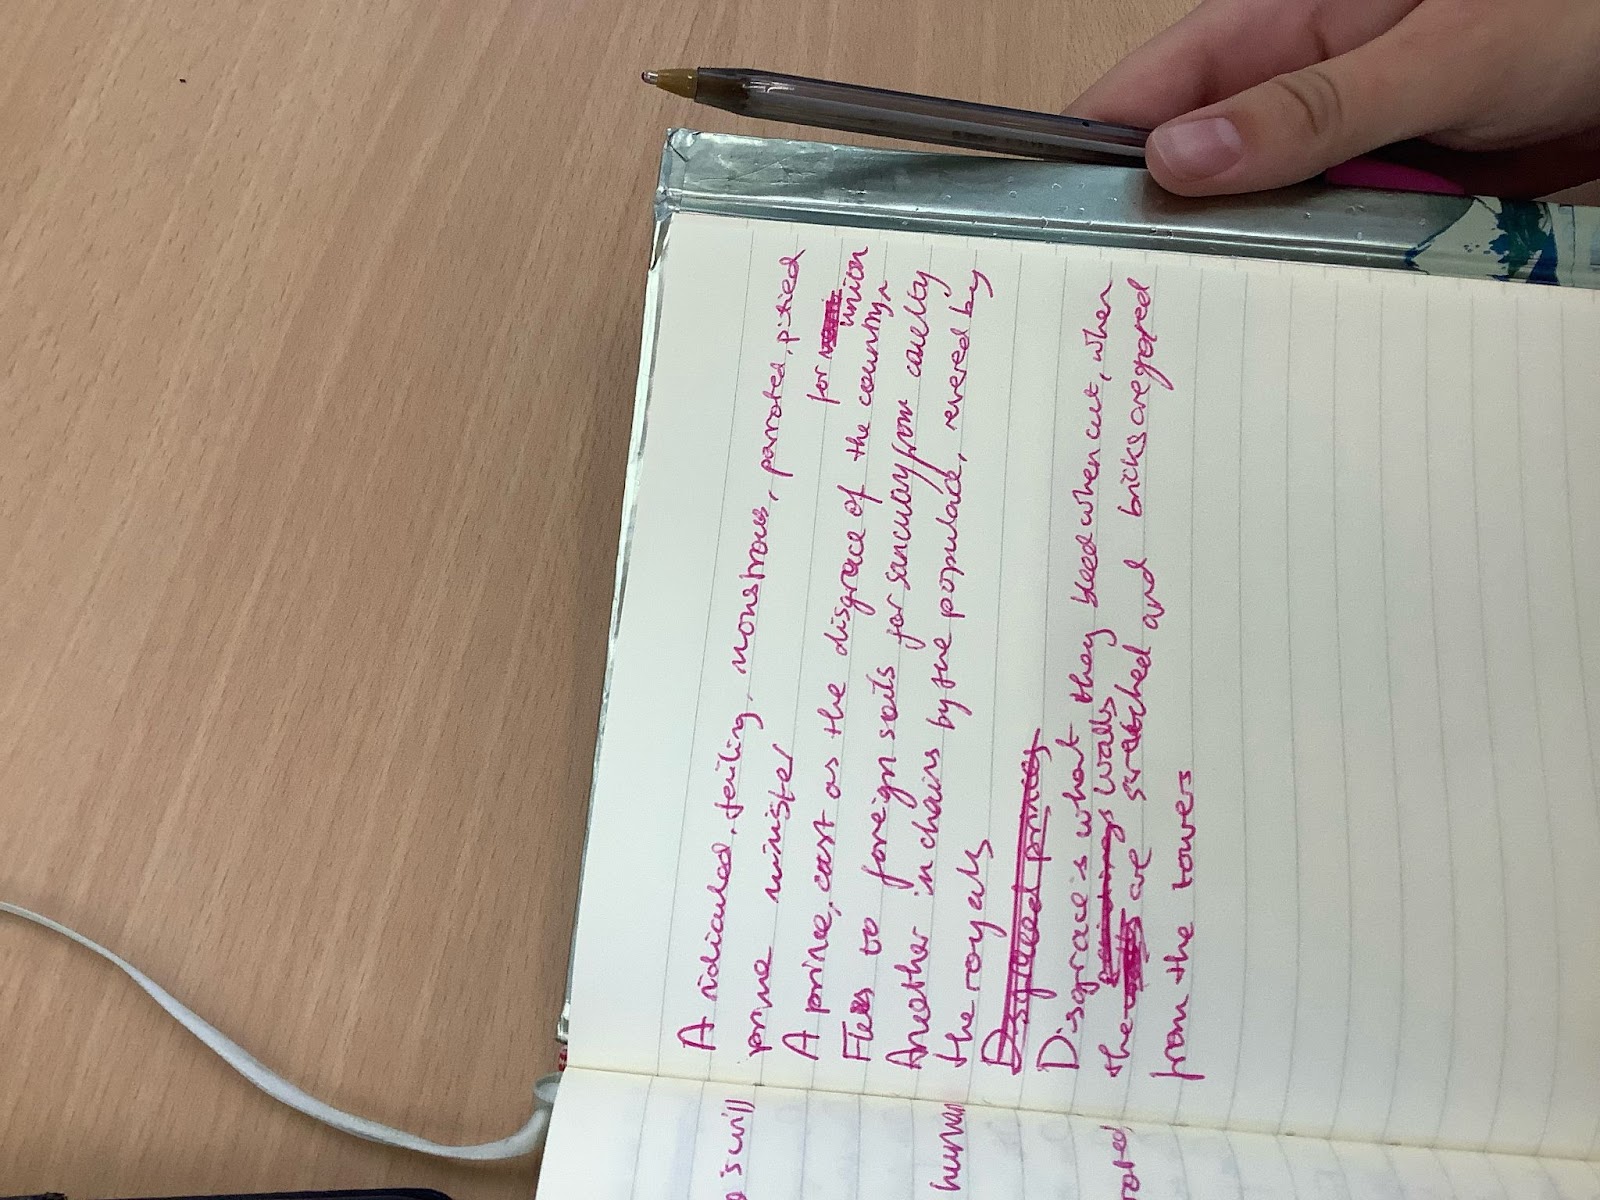 A ridiculed, failing, monstrous, parroted, pitied
prime minister
A prince, cast as the disgrace of the country,
for union
Flees to foreign soils for sancuary from cruelty
Another in chains by the populace, revered by
the royals
Disgraced princes
Disgrace is what they bleed when cut, when
the walls are scratched and bricks are gored
from the towers
is will
human